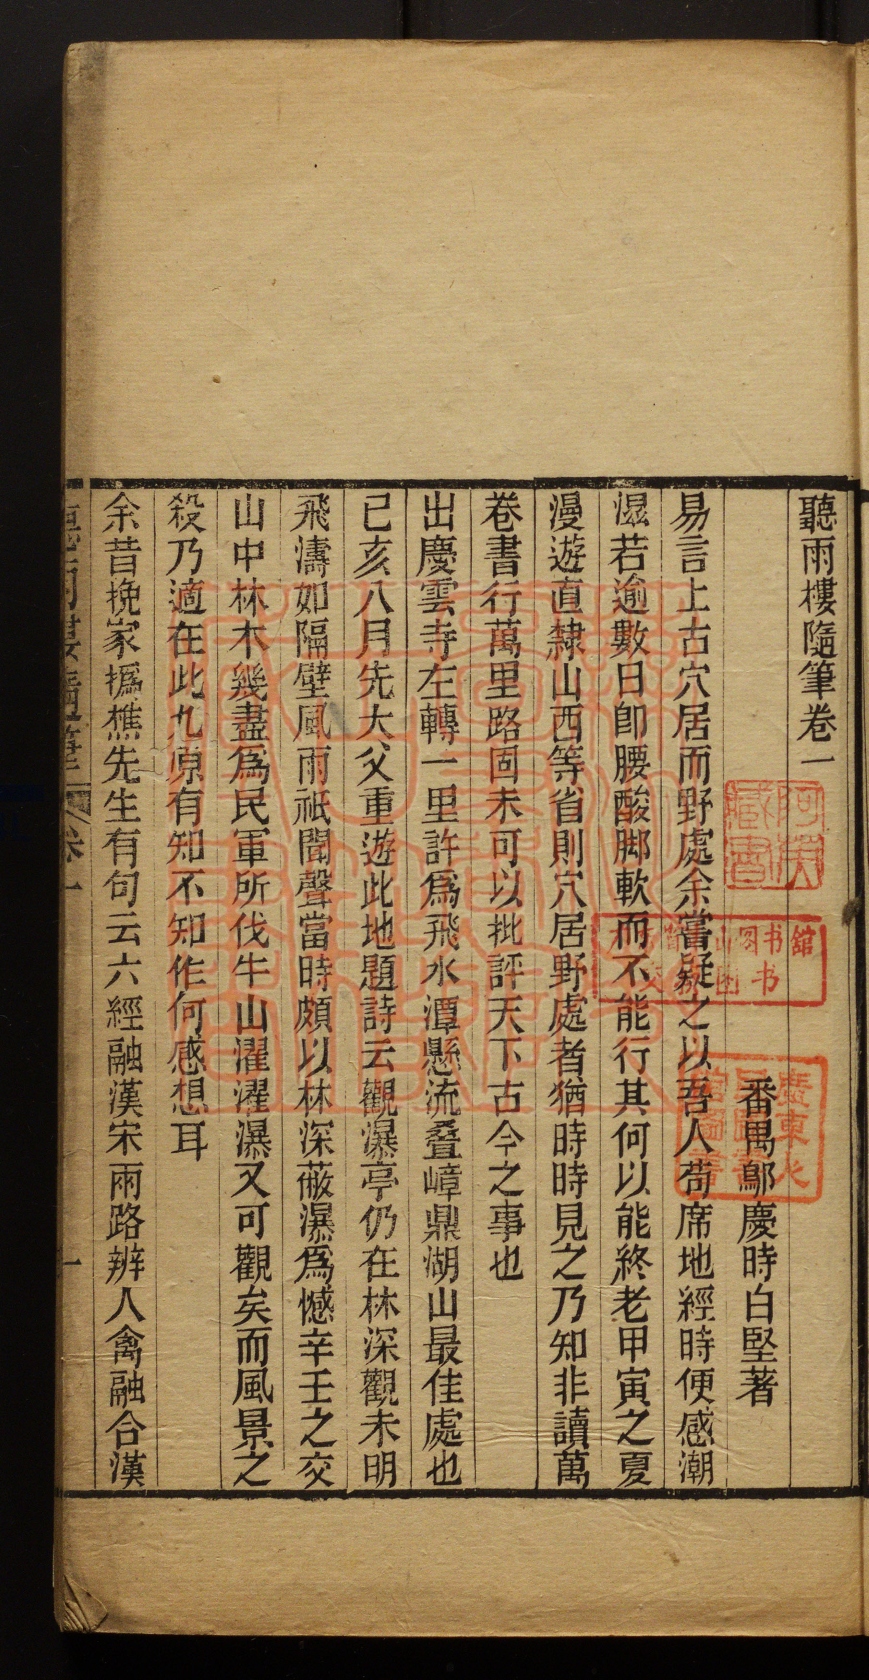 聽雨樓隨筆卷一
番禺鄔慶時白堅著
易言上古穴居而野處余嘗疑之以吾人苟席地經時便感潮
濕若逾數日卽腰酸脚軟而不能行其何以能終老甲寅之夏
漫遊直隸山西等省則穴居野處者猶時時見之乃知非讀萬
卷書行萬里路固未可以批評天下古今之事也
出慶雲寺左轉一里許爲飛水潭懸流叠嶂鼎湖山最佳處也
已亥八月先大父重遊此地題詩云觀瀑亭仍在林深觀未明
飛濤如隔壁風雨祇聞聲當時頗以林深蔽瀑爲憾辛壬之交
山中林木幾盡爲民軍所伐牛山濯濯瀑又可觀矣而風景之
殺乃適在此九原有知不知作何感想耳
余昔挽家撝樵先生有句云六經融漢宋兩路辨人禽融合漢
聽雨樓隨筆 卷一 一